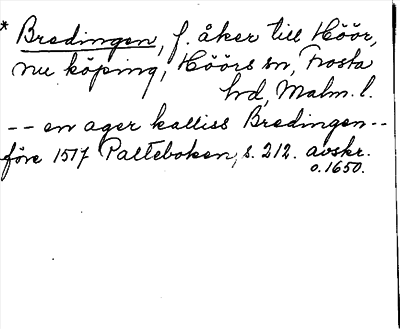 * Bredingen, f. åker till Höör,
nu köping, Höörs sn, Frosta
hd, Malm. l.
-- en ager kalliss Bredingen --
före 1517 Palteboken, s. 212. avskr.
o. 1650.